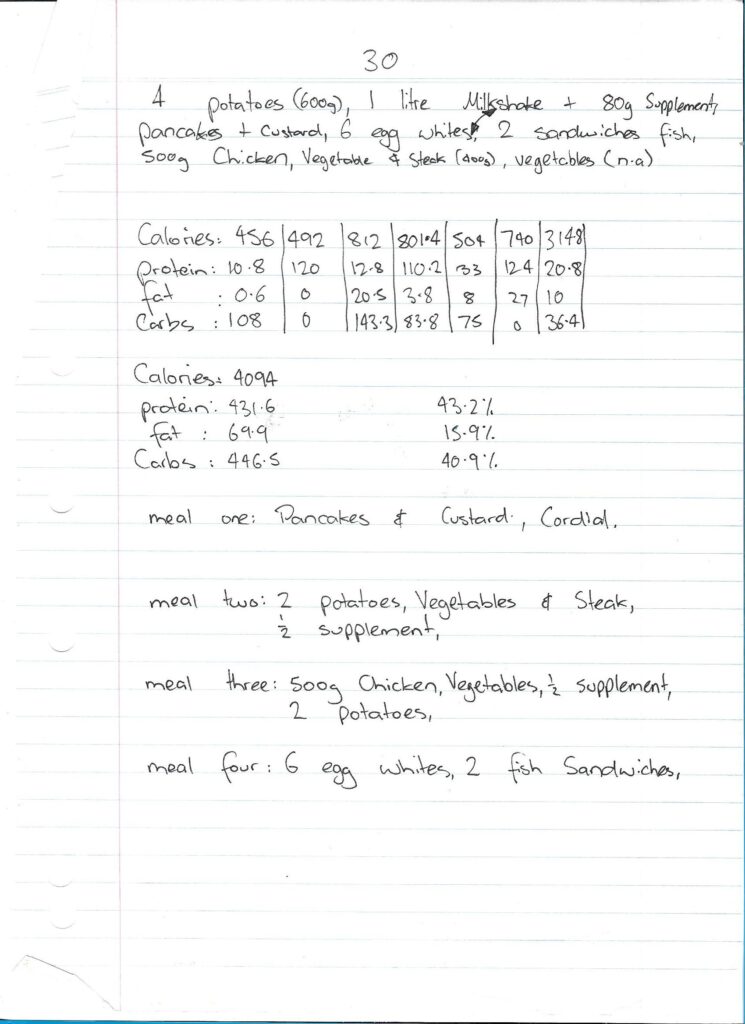 30
4 potatoes (600g), 1 litre Milkshake + 80g Supplement,
pancakes + Custard, 6 egg whites, 2 sandwiches fish,
500g Chicken, Vegetable & Steak (400g), vegetables (n.a)
Calories: 456 | 492 | 812 | 801.4 | 504 | 740 | 3148
protein: 10.8 | 120 | 12.8 | 110.2 | 33 | 124 | 20.8
fat : 0.6 | 0 | 20.5 | 3.8 | 8 | 27 | 10
Carbs : 108 | 0 | 143.3 | 83.8 | 75 | 0 | 36.4
Calories: 4094
protein: 431.6 43.2%
fat : 69.9 15.9%
Carbs : 446.5 40.9%
meal one: Pancakes & Custard, Cordial.
meal two: 2 potatoes, Vegetables & Steak,
1/2 supplement,
meal three: 500g Chicken, Vegetables, 1/2 supplement,
2 potatoes,
meal four: 6 egg whites, 2 fish Sandwiches,